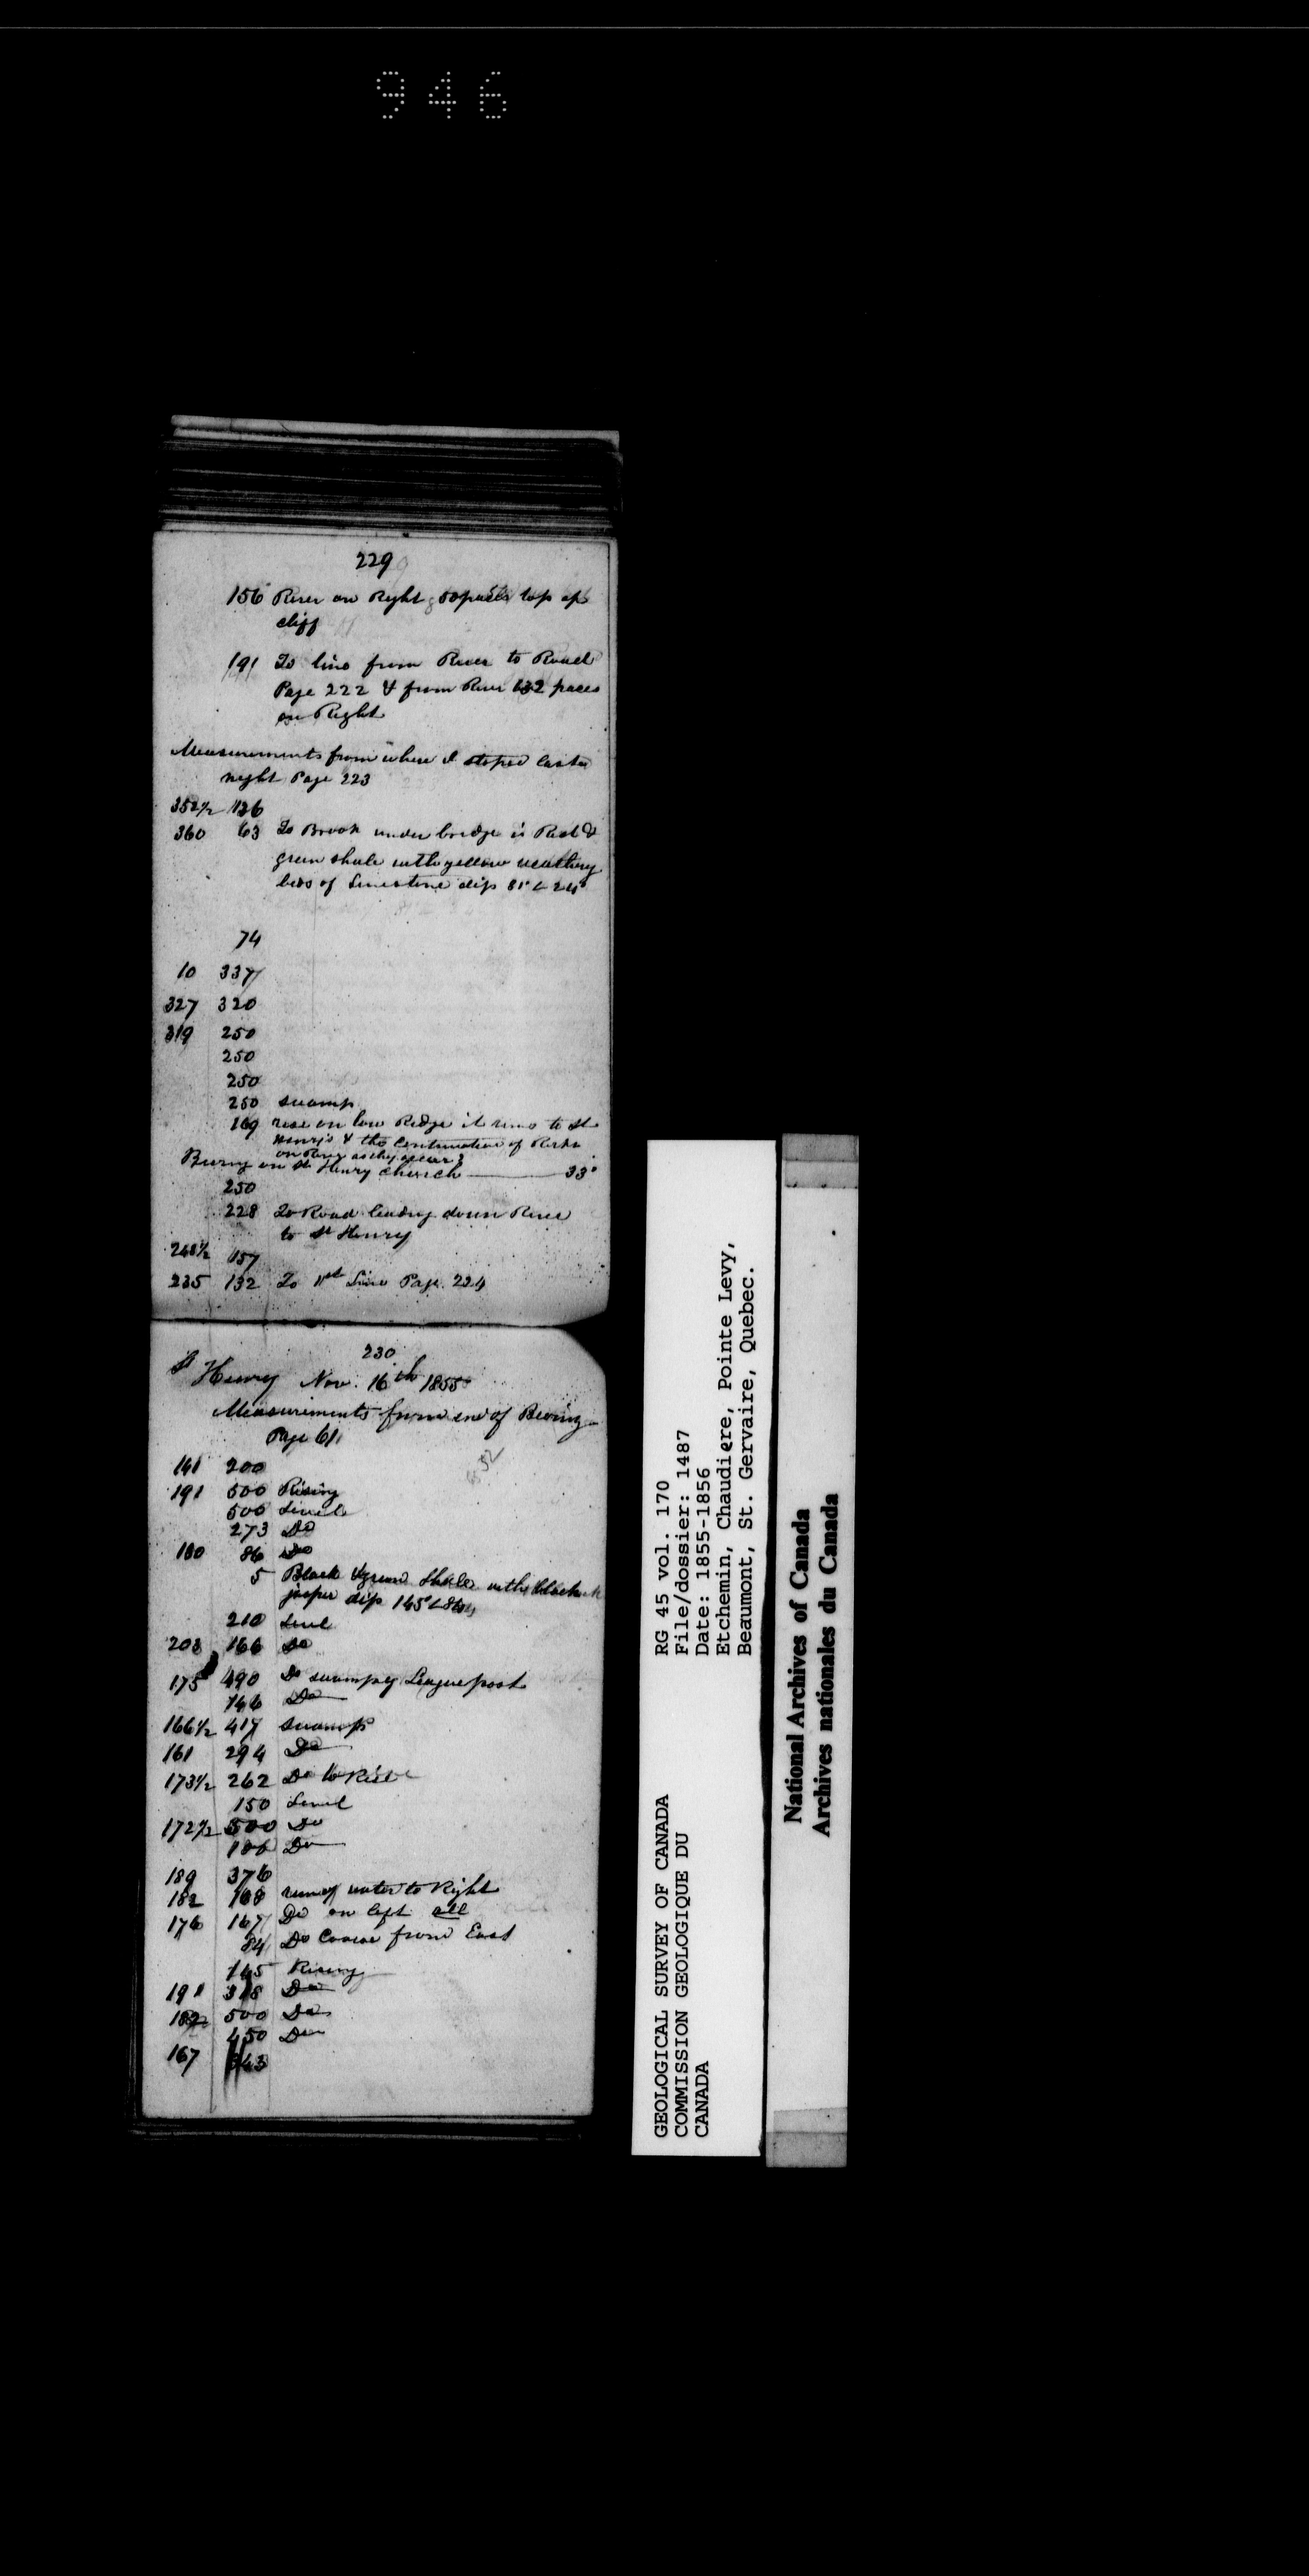 946
229
156 River on Right 50 paces top of
cliff
191 To line from River to Road
Page 222 & from River 132 paces
on Right
Measurements from where I stoped last
night Page 223
352½ 126
360 63 To Brook under bridge is Red &
green shale with yellow weathering
beds of Limestone dip 81° L 24°
74
10 337
327 320
319 250
250
250
250 swamp
169 rise on low Ridge it runs to St
Henrys & the Continuation of Rocks
on River as they occur
Bering on St Henry church 33°
250
228 To Road leading down River
to St Henry
248½ 157
235 132 To 1st Line Page 224
230
St Henry Nov. 16th 1855
Measurements from end of Bering
Page 61
141 200
191 500 Rising
500 Level
273 Do
180 86 Do
5 Black & green Shale with black
jasper dip 145° L 84
210 Level
203 166 Do
175 490 Do swampy League post
146 Do
166½ 417 swamp
161 294 Do
173½ 262 Do to Rise
150 Level
172½ 500 Do
186 Do
189 376
182 108 run of water to Right
176 167 Do on left all
84 Do Course from East
145 Rising
191 318 Do
182 500 Do
450 Do
167 343
RG 45 vol. 170
File/dossier: 1487
Date: 1855-1856
Etchemin, Chaudiere, Pointe Levy,
Beaumont, St. Gervaire, Quebec.
GEOLOGICAL SURVEY OF CANADA
COMMISSION GEOLOGIQUE DU
CANADA
National Archives of Canada
Archives nationales du Canada